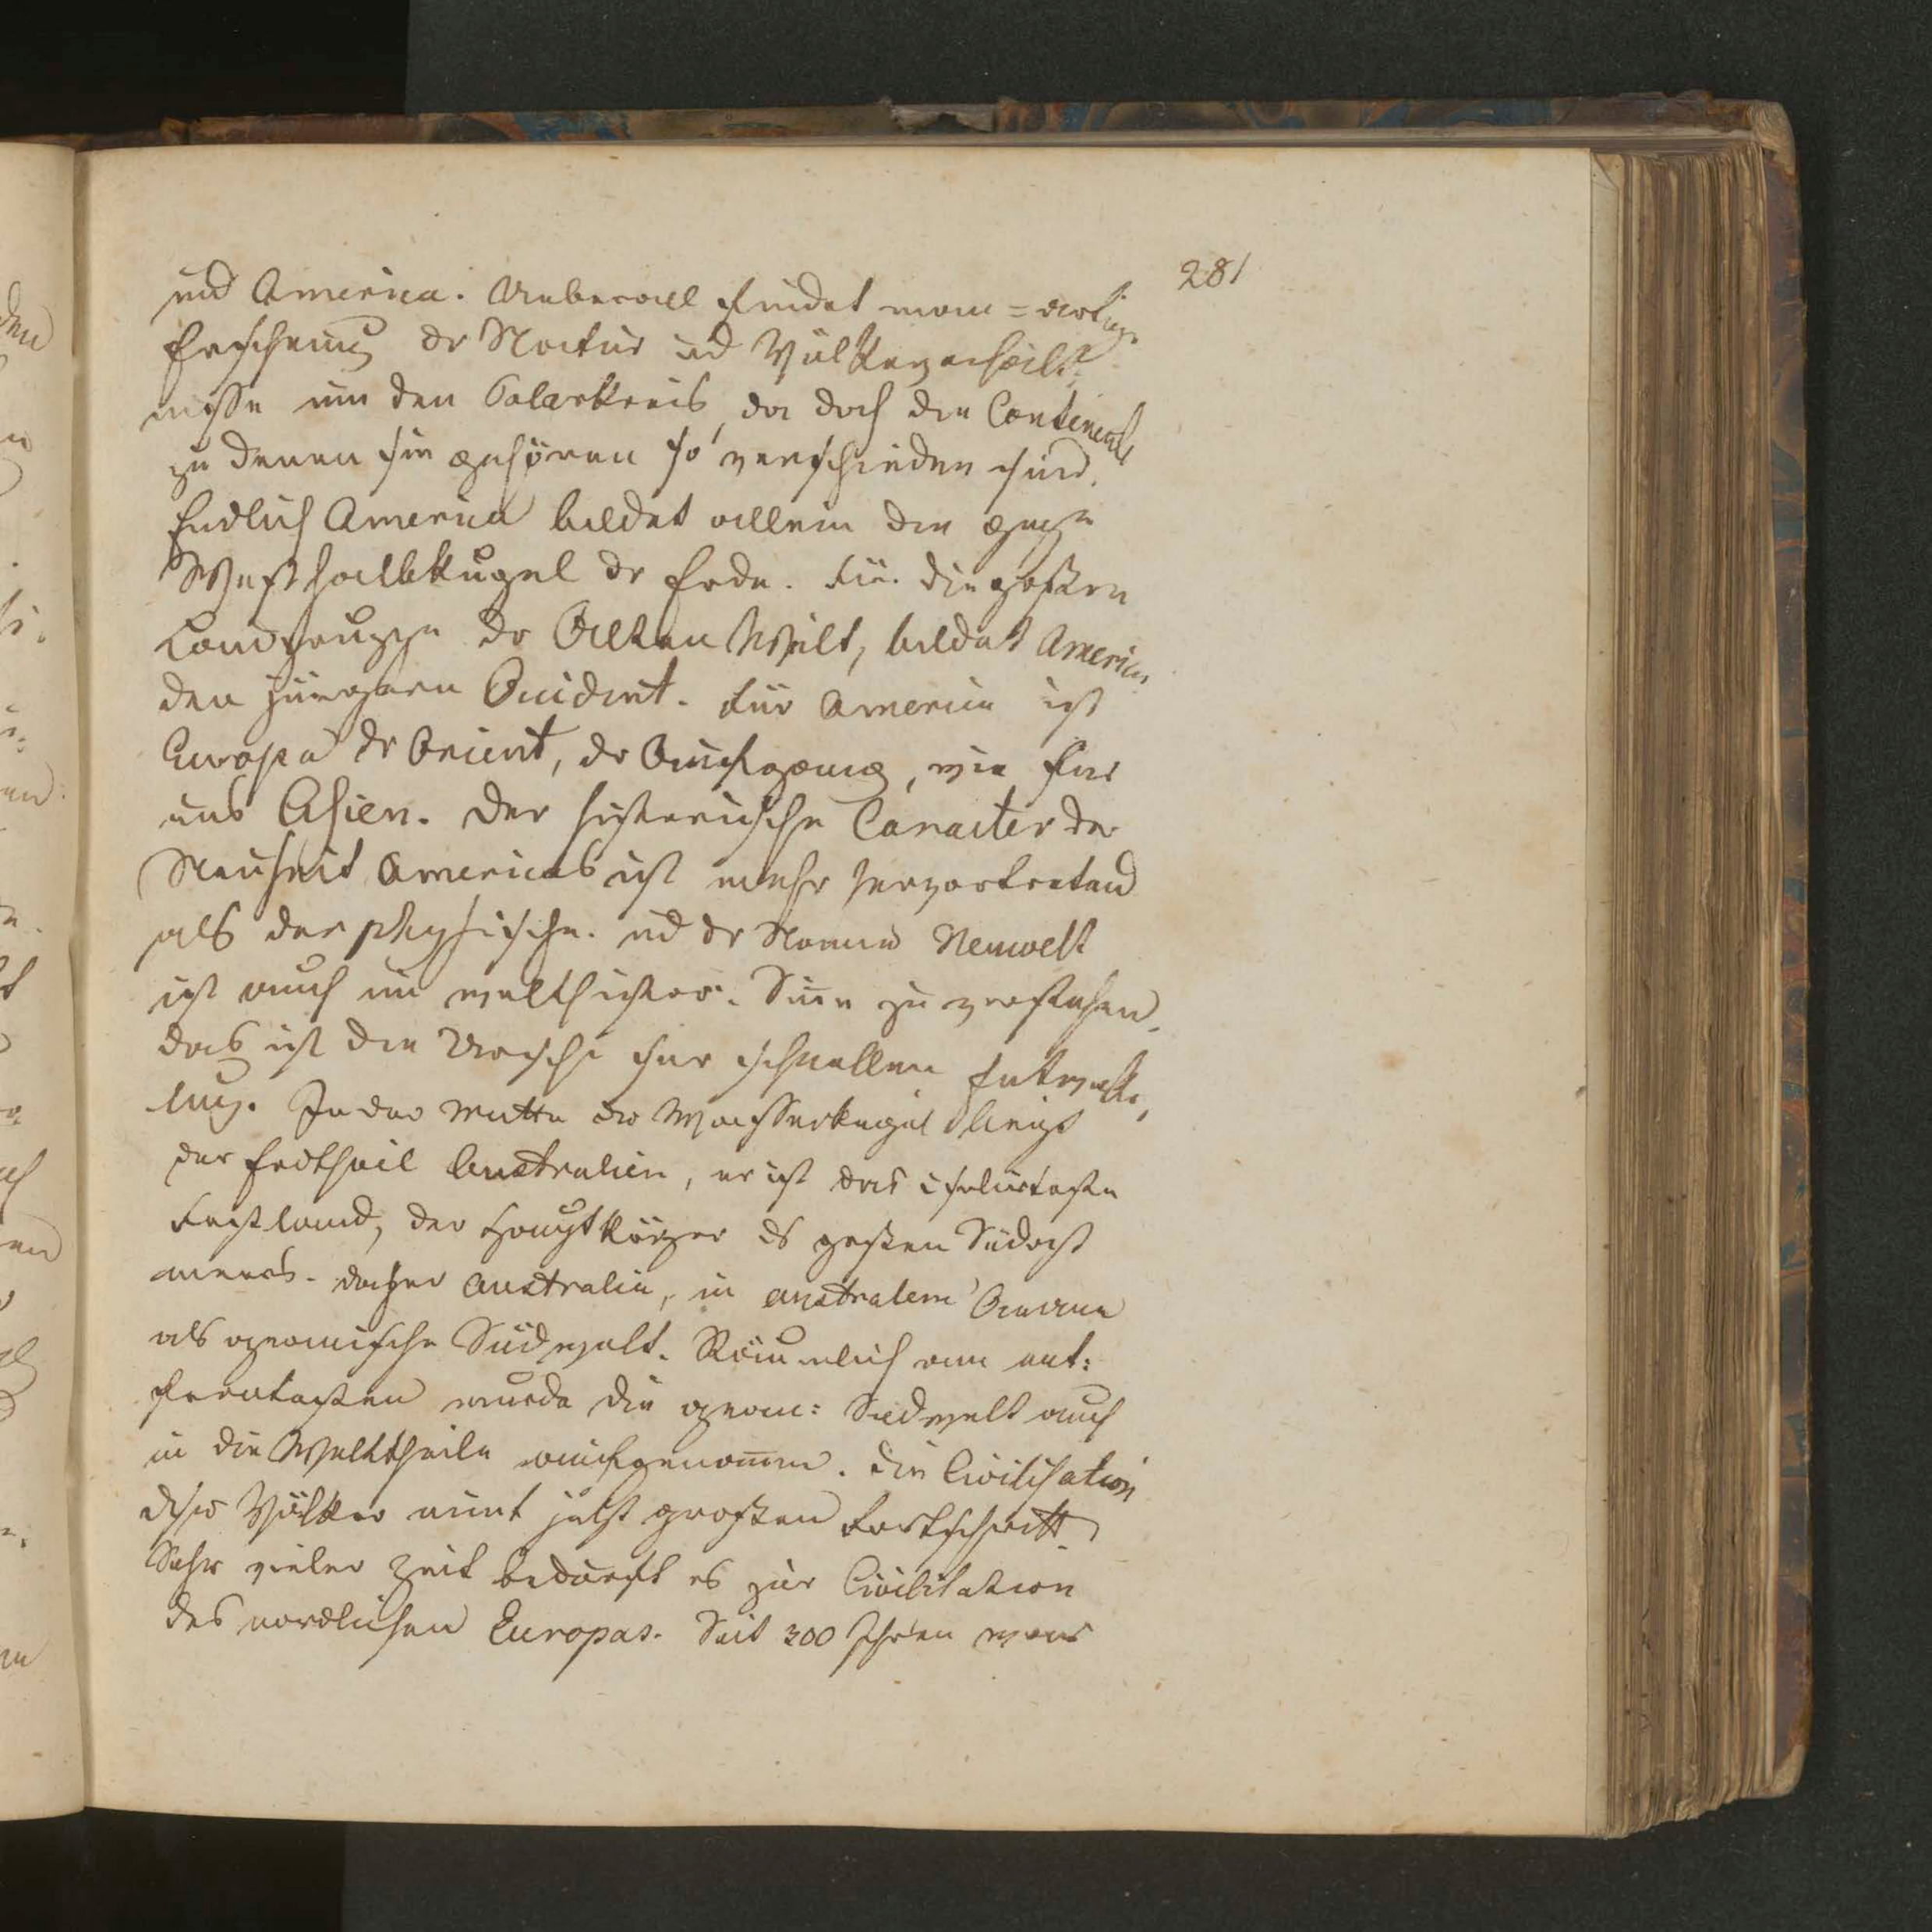 281
und America. Ueberall findet man = artige
Erscheinung dr Natur ud Völkerverhält-
nisse um den Polarkreis, da doch die Continente
zu denen sie gehören so verschieden sind.
Endlich America bildet allein die ganze
Westhalbkugel dr Erde. Für die großen
Landgruppe dr Alten Welt, bildet America
den jüngern Occident. Für America ist
Europa dr Orient, dr Aufgang, wie für
uns Asien. Der historische Caracter der
Neuheit Americas ist mehr hervortretend
als der physische. ud dr Name Neuwelt
ist auch im welthistor. Sinn zu verstehen,
das ist die Ursache ihr schnellen Entwicke,
lung. In der Mitte dr Wasserkugel liegt
der Erdtheil Australien, er ist das isolirteste
Festland, der Hauptkörper ds großen Südost
meeres. daher Australien, im australem Oceane
als oceanische Südwelt. Räumlich am ent:
ferntesten wurde die ocean: Südwelt auch
in die Welttheile aufgenommen. Die Civilisation
dser Völker nimt jetzt großen Fortschritt.
Sehr vieler Zeit bedurft es zur Civilisation
des nordlichen Europas. Seit 300 Jhren war